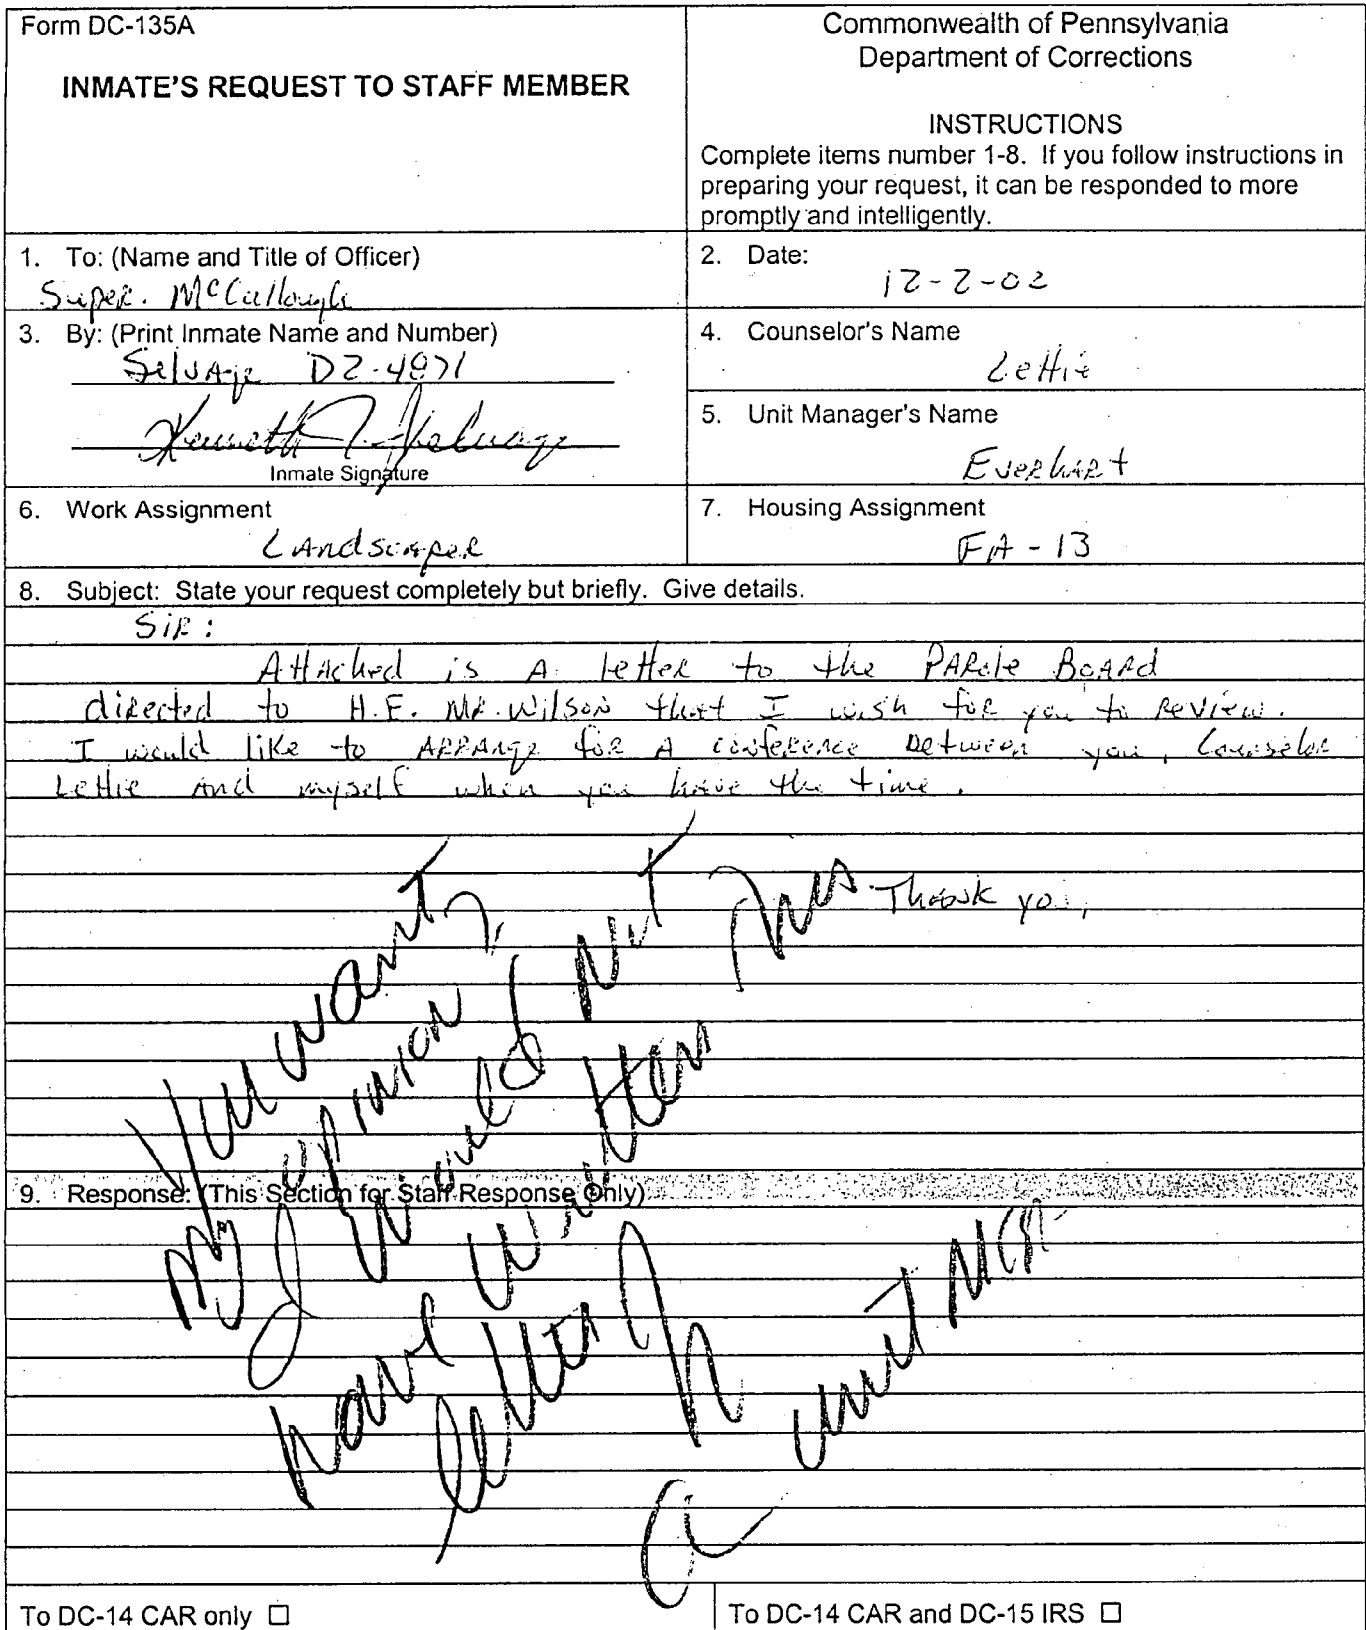 Form DC-135A
INMATE'S REQUEST TO STAFF MEMBER
Commonwealth of Pennsylvania
Department of Corrections
INSTRUCTIONS
Complete items number 1-8. If you follow instructions in
preparing your request, it can be responded to more
promptly and intelligently.
1. To: (Name and Title of Officer)
Super. McCullough
2. Date:
12-2-02
3. By: (Print Inmate Name and Number)
Selvage DZ-4871
Kenneth J. Shelvage
Inmate Signature
4. Counselor's Name
Lettie
5. Unit Manager's Name
Everhart
6. Work Assignment
Landscaper
7. Housing Assignment
FA-13
8. Subject: State your request completely but briefly. Give details.
Sir:
Attached is A letter to the Parole Board
directed to H.E. Mr. Wilson that I wish for you to review.
I would like to ARRange for A conference between you, Counselor
Lettie and myself when you have the time.
Thank you,
You want
my opinion,
I would not
have written this
letter
9. Response: (This Section for Staff Response Only)
unit Mgr.
To DC-14 CAR only ☐
To DC-14 CAR and DC-15 IRS ☐